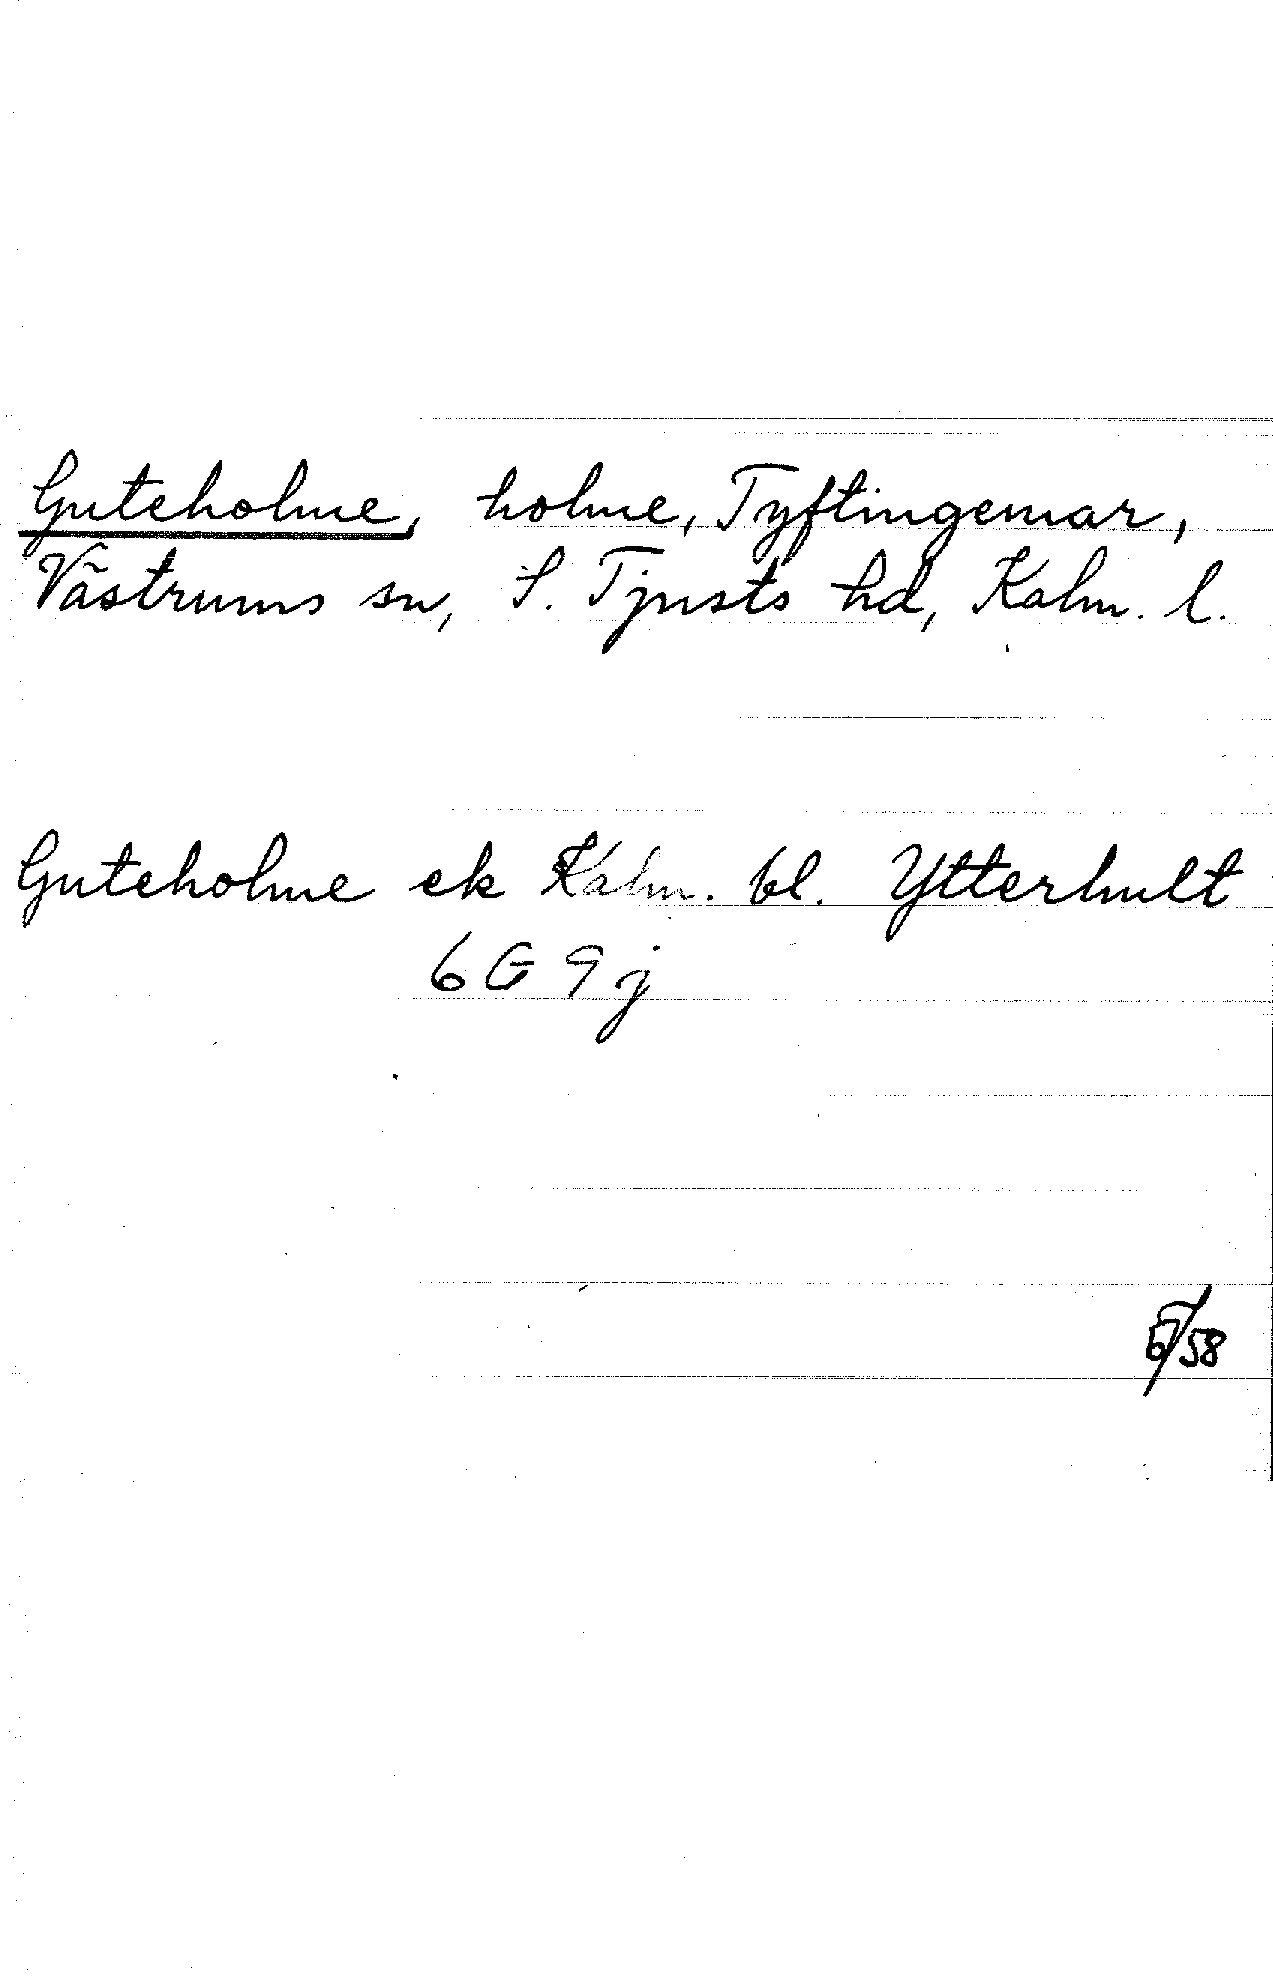 Guteholme, holme, Tyftingemar,
Västrums sn, S. Tjusts hd, Kalm. l.
Guteholme ek Kalm. bl. Ytterhult
6 G 9 j
/58